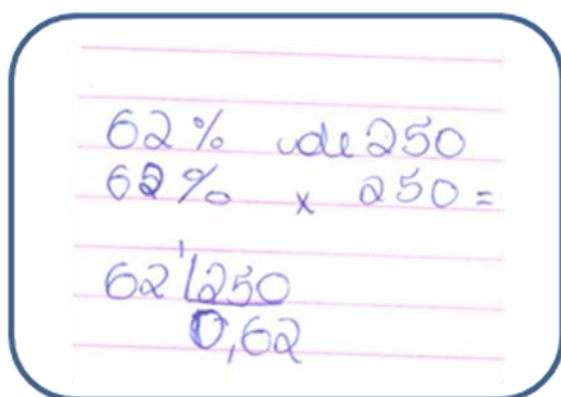 62% de 250
62% x 250 =
62 250
0,62